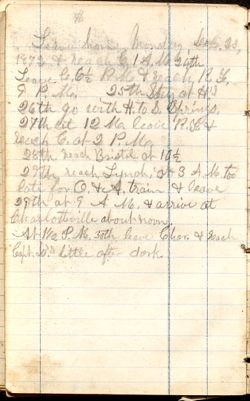 Leave home Monday Sept. 23,
1872 & reach C. 1 A.M. 24th
Leave C. 6½ P.M. & reach K. at
9 P.M. 25th Stay at H's
26th go with H. to S. Springs.
27th at 12 M. leave R. &
reach C. at 2 P.M.
28th reach Bristol at 10½
29th, reach Lynch. at 3 A.M. too
late for O. & A. train & leave
29th at 9 A.M. & arrive at
Charlottsville about noon.
At P.M. 30th leave Char. & reach
Capt. little after dark